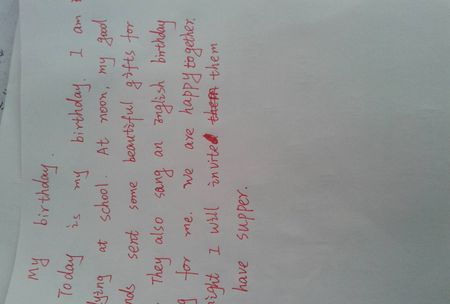 My birthday.
Today is my birthday. I am
ying at school. At noon, my good
nds sent some beautiful gifts for
. They also sang an english birthday
g for me. We are happy together.
ight I will invite them
have supper.